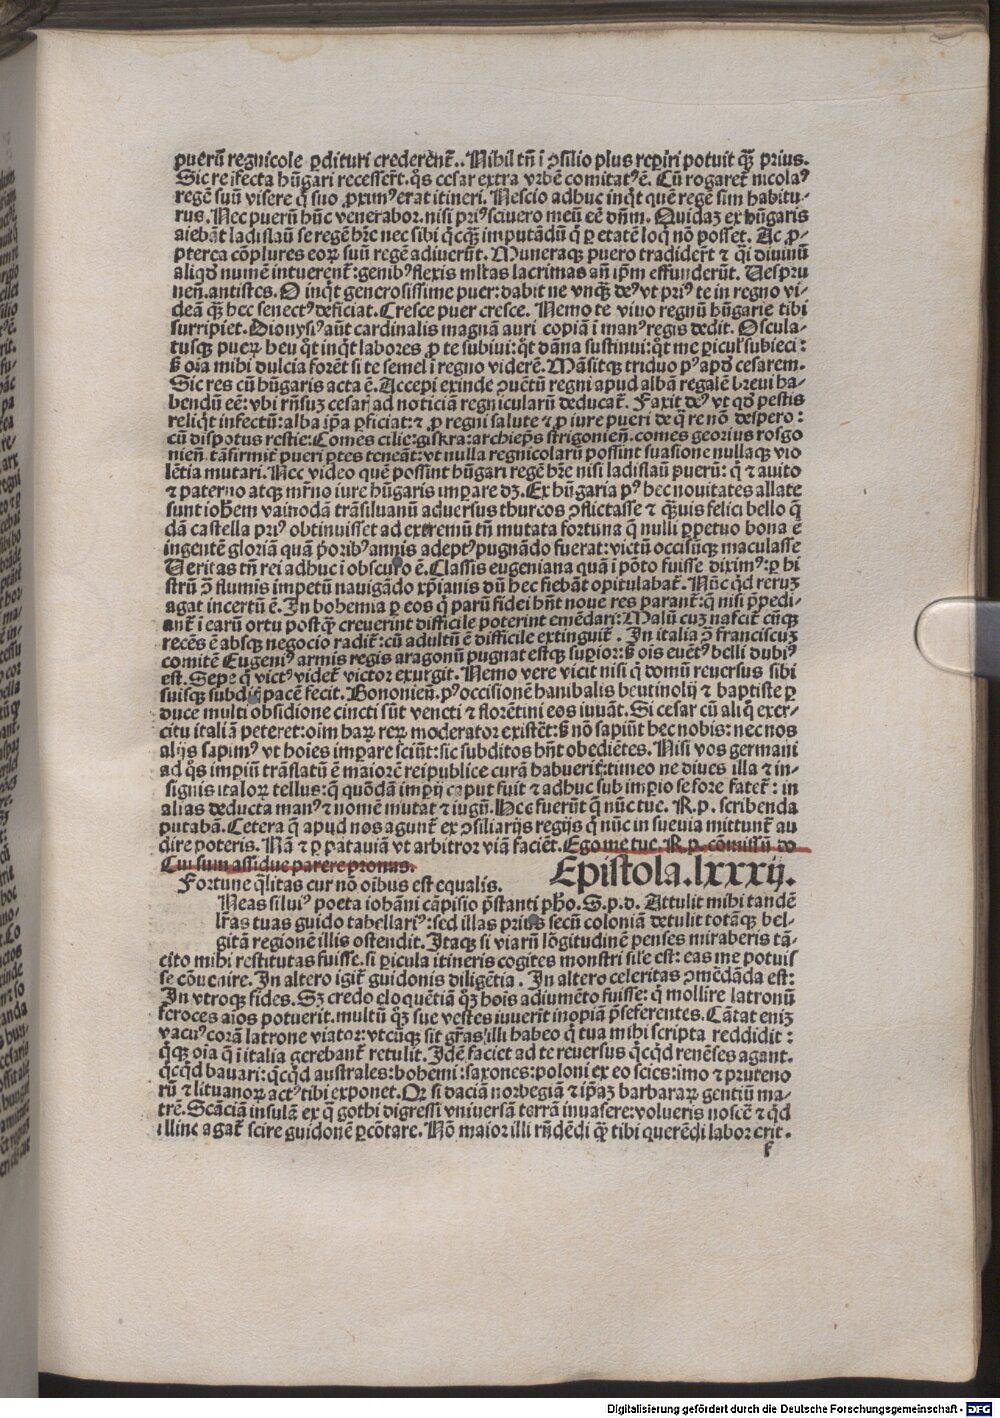 puerū regnicole ꝑdituri crederēt̄.. Nihil tn̄ ī ꝯsilio plus reꝑiri potuit qꝫ̄ prius.
Sic re īfecta hūgari recesser̄t. q̊s cesar extra vrbē comitatꝰ ē. Cū rogaret̄ nicolaꝰ
regē suū visere q̄ suo ꝓximꝰ erat itineri. Nescio adhuc inqt quē regē sim habitu-
rus. Nec puerū hūc venerabor. nisi priꝰ sciuero meū eē dn̄m. Quidaꝫ ex hūgaris
aiebāt ladislaū se regē hr̄e nec sibi qcqꝫ imputādū q̄ ꝑ etatē loq̄ nō posset. Ac ꝓ-
pterea cōplures eoꝝ suū regē adiuerūt. Muneraqꝫ puero tradider̄t ⁊ q̄i diuinū
aliqd̄ numē intuerent̄: genibꝰ flexis mltas lacrimas an̄ ip̄m effunderūt. Uespru
nen̄. antistes. O inqt generosissime puer: dabit ne vnqꝫ deꝰ vt priꝰ te in regno vi-
deā qꝫ̄ hec senectꝰ deficiat. Cresce puer cresce. Nemo te viuo regnū hūgarie tibi
surripiet. Dionysiꝰ aūt cardinalis magnā auri copiā ī manꝰ regis dedit. Oscula-
tusqꝫ pueꝝ heu qt̄ inqt labores ꝓ te subiui: qt̄ dāna sustinui: qt̄ me ꝑicul̄ subieci:
s̄ oīa mihi dulcia forēt si te semel ī regno viderē. Māsitqꝫ triduo pꝰ apd̄ cesarem.
Sic res cū hūgaris acta ē. Accepi exinde ꝯuētū regni apud albā regalē breui ha-
bendū eē: vbi rn̄suꝫ cesar̄ ad noticiā regnicularū deducat̄. Faxit deꝰ vt qd̄ pestis
reliqt infectū: alba ip̄a ꝑficiat: ⁊ ꝓ regni salute ⁊ ꝓ iure pueri de q̄ re nō despero:
cū dispotus restie: Comes cilie: giskra: archiep̄s strigonien̄. comes georius rosgo
nien̄. tā firmit̄ pueri ꝑtes teneāt: vt nulla regnicolarū possint suasione nullaqꝫ vio
lētia mutari. Nec video quē possint hūgari regē hr̄e nisi ladislaū puerū: q̄ ⁊ auito
⁊ paterno atqꝫ mr̄no iure hūgaris imꝑare dꝫ. Ex hūgaria pꝰ hec nouitates allate
sunt ioh̄em vainodā trāsiluanū aduersus thurcos ꝯflictasse ⁊ qꝫuis felici bello q̄
dā castella priꝰ obtinuisset ad extremū tn̄ mutata fortuna q̄ nulli ꝑpetuo bona ē
ingentē gloriā quā p̄oribꝰ annis adeptꝰ pugnādo fuerat: victū occisūqꝫ maculasse
Ueritas tn̄ rei adhuc ī obscuro ē. Classis eugeniana quā ī pōto fuisse diximꝰ: ꝑ hi
strū ꝯ̄ fluminis impetū nauigādo xp̄ianis dū hec fiebāt opitulabat̄. Nūc qd̄ reruꝫ
agat incertū ē. In bohemia ꝑ eos q̄ parū fidei hn̄t noue res parant̄: q̄ nisi p̄pedi-
ant̄ ī earū ortu postqꝫ̄ creuerint difficile poterint emēdari: Malū cuꝫ nascit̄ cūqꝫ
recēs ē absqꝫ negocio radit̄: cū adultū ē difficile extinguit̄. In italia ꝯ̄ franciscuꝫ
comitē Eugeniꝰ armis regis aragonū pugnat estqꝫ suꝑior: s̄ ois euētꝰ belli dubiꝰ
est. Sepe q̄ victꝰ videt̄ victor exurgit. Nemo vere vicit nisi q̄ domū reuersus sibi
suisqꝫ subditis pacē fecit. Bononien̄. pꝰ occisionē hanibalis beutinolij ⁊ baptiste ꝑ
duce multi obsidione cincti sūt veneti ⁊ florētini eos iuuāt. Si cesar cū aliq̄ exer-
citu italiā peteret: oim haꝝ reꝝ moderator existēt: s̄ nō sapiūt hec nobis: nec nos
alijs sapimꝰ vt hoies imꝑare sciūt: sic subditos hn̄t obediētes. Nisi vos germani
ad q̊s imꝑiū trāslatū ē maiorē reipublice curā habuerit̄: timeo ne diues illa ⁊ in-
signis italoꝝ tellus: q̄ quōdā imꝑij caput fuit ⁊ adhuc sub imꝑio se fore fatet̄: in
alias deducta manꝰ ⁊ nomē mutat ⁊ iugū. Hec fuerūt q̄ nūc tue. R. p. scribenda
putabā. Cetera q̄ apud nos agunt̄ ex ꝯsiliarijs regijs q̄ nūc in sueuia mittunt̄ au
dire poteris. Nā ⁊ ꝑ patauiā vt arbitror viā faciēt. Ego me tue. R. p. cōmissū do
Cui sum assidue parere pronus.
Epistola.lxxxij.
Fortune q̄litas cur nō oībus est equalis.
Neas siluiꝰ poeta iohāni cāpisio p̄stanti ph̄o. S. p. d. Attulit mihi tandē
lr̄as tuas guido tabellariꝰ: sed illas prius secū coloniā detulit totāqꝫ bel-
gitā regionē illis ostendit. Itaqꝫ si viarū lōgitudinē penses miraberis tā-
cito mihi restitutas fuisse. si ꝑicula itineris cogites monstri sil̄e est: eas me potuis
se cōuenire. In altero igit̄ guidonis diligētia. In altero celeritas ꝯmēdāda est:
In vtroqꝫ fides. Sꝫ credo eloquētiā qꝫ hois adiumēto fuisse: q̄ mollire latronū
feroces aīos potuerit. multū qꝫ sue vestes iuuerit inopiā p̄seferentes. Cātat eniꝫ
vacuꝰ corā latrone viator: vtcūqꝫ sit gr̄as illi habeo q̄ tua mihi scripta reddidit:
q̄qꝫ oīa q̄ ī italia gerebant̄ retulit. Idē faciet ad te reuersus qcqd̄ renēses agant.
qcqd̄ bauari: qcqd̄ australes: bohemi: saxones: poloni ex eo scies: imo ⁊ pruteno
rū ⁊ lituanoꝝ actꝰ tibi exponet. Qꝛ si daciā norbegiā ⁊ ip̄aꝫ barbaraꝝ gentiū ma-
trē. Scāciā insulā ex q̄ gothi digressi vniuersā terrā inuasere: volueris noscē ⁊ qd̄
illinc agat̄ scire guidonē ꝑcōtare. Nō maior illi rn̄dēdi qꝫ̄ tibi querēdi labor erit.
f
Digitalisierung gefördert durch die Deutsche Forschungsgemeinschaft - DFG